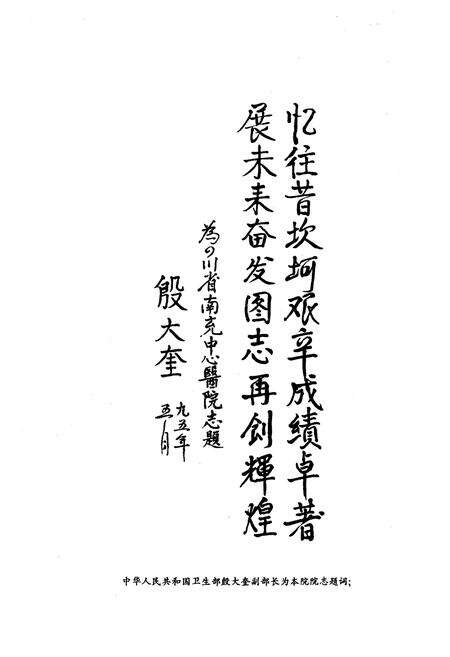 忆往昔坎坷艰辛成績卓著
展未来奋发图志再创輝煌
為四川省南充中心醫院志題
殷大奎
九五年
五月
中华人民共和国卫生部殷大奎副部长为本院院志题词;